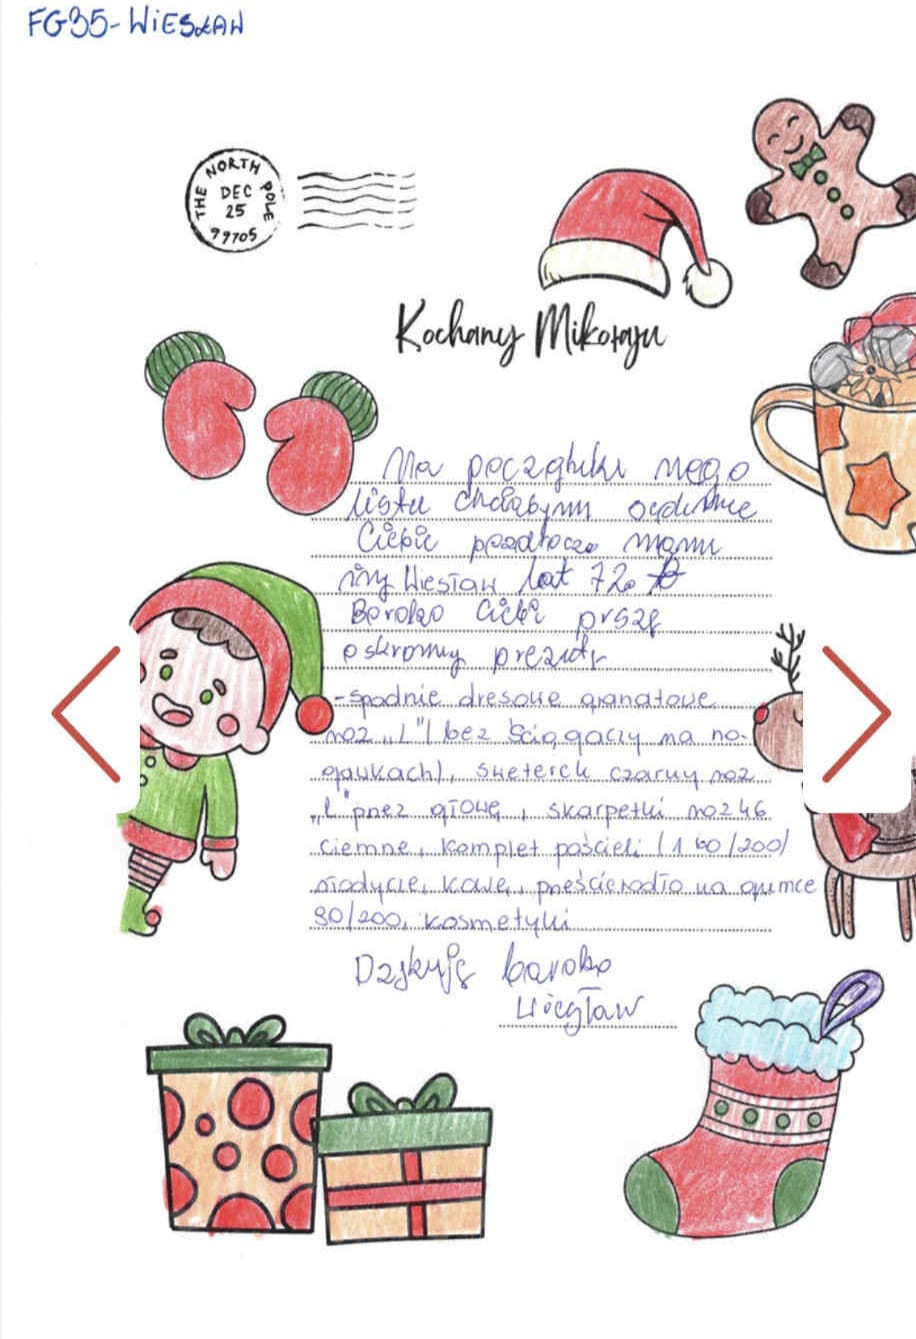 FG35-WIESŁAW
THE NORTH POLE
DEC
25
99705
Kochany Mikołaju
Na początku mego
listu chciałbym
Ciebie mam
Wiesław lat 72
Ciebie
o skromny prezent
-spodnie dresowe granatowe
roz „L" (bez ściągaczy na no-
gawkach), sweterek czarny roz
„L" przez głowę, skarpetki roz 46
ciemne, komplet pościeli (160/200)
słodycze, kawę, prześcieradło na gumce
90/200, kosmetyki
Dziękuję bardzo
Wiesław